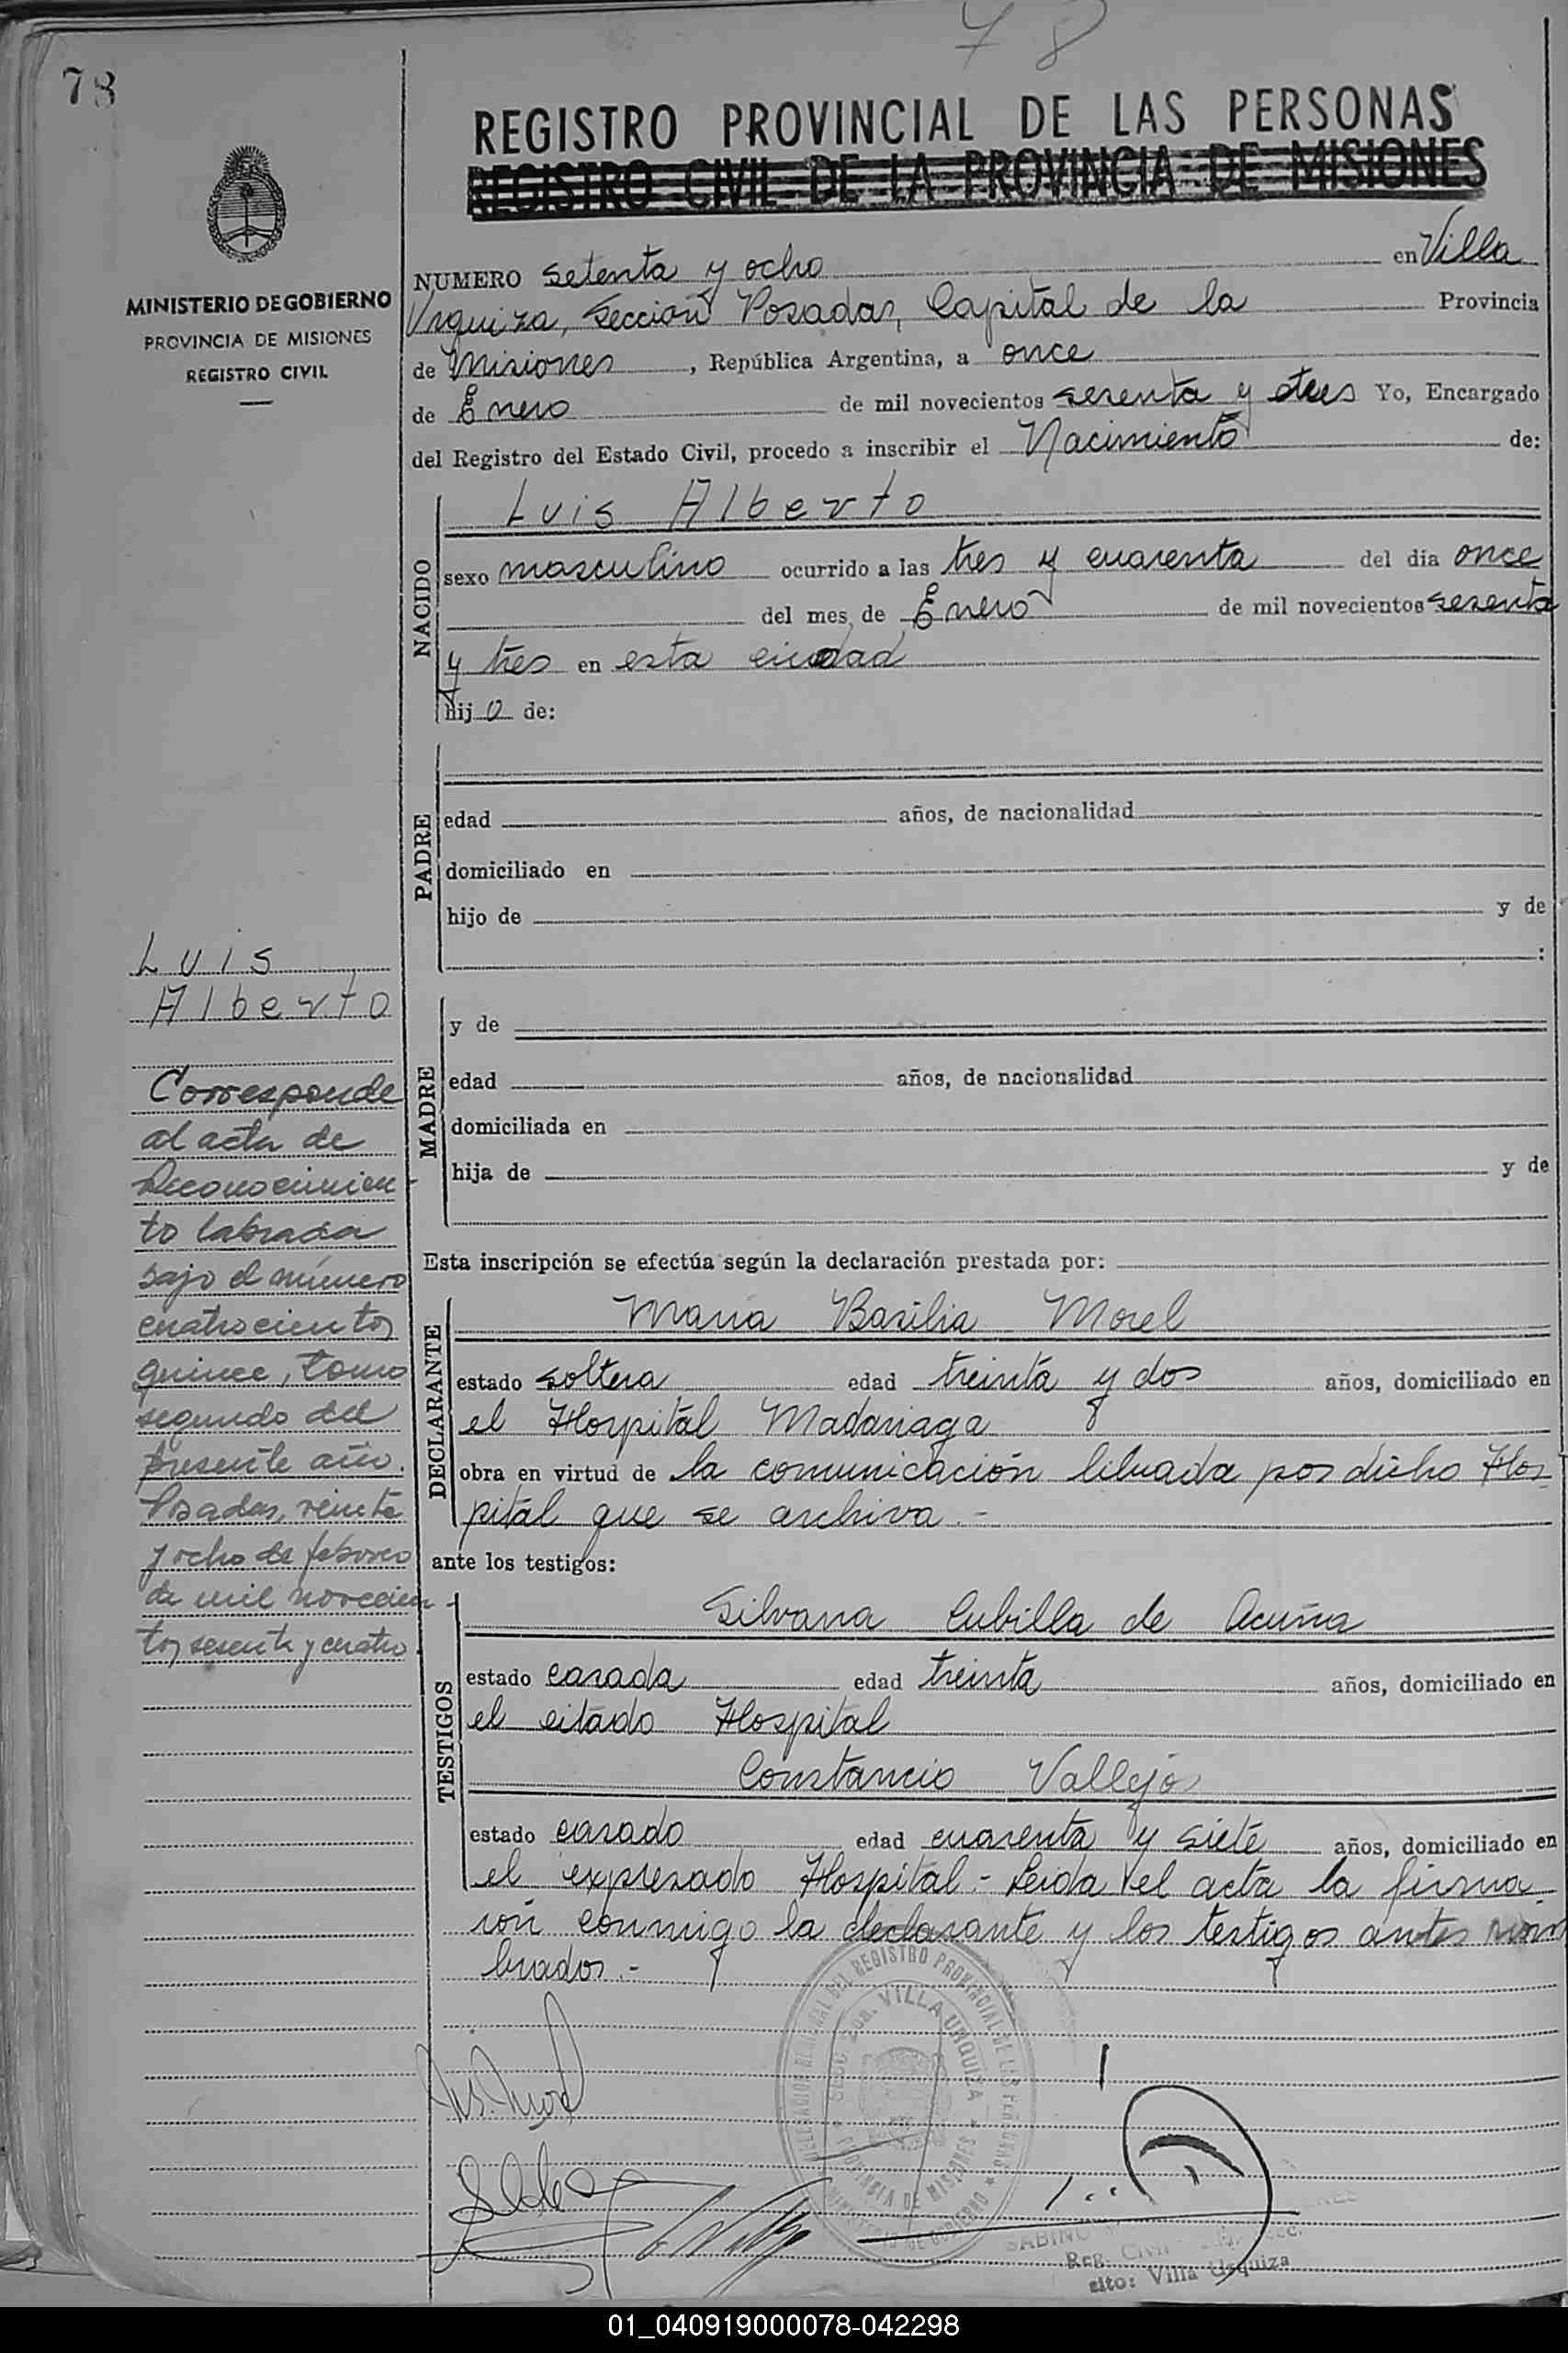 78
78
REGISTRO PROVINCIAL DE LAS PERSONAS
REGISTRO CIVIL DE LA PROVINCIA DE MISIONES
MINISTERIO DE GOBIERNO
PROVINCIA DE MISIONES
REGISTRO CIVIL
NUMERO setenta y ocho en Villa
Urquiza, Sección Posadas, Capital de la Provincia
de Misiones, República Argentina, a once
de Enero de mil novecientos sesenta y tres Yo, Encargado
del Registro del Estado Civil, procedo a inscribir el Nacimiento de:
NACIDO
Luis Alberto
sexo masculino ocurrido a las tres y cuarenta del dia once
del mes de Enero de mil novecientos sesenta
y tres en esta ciudad
hijo de:
PADRE
edad años, de nacionalidad
domiciliado en
hijo de y de
:
MADRE
y de
edad años, de nacionalidad
domiciliada en
hija de y de
Luis
Alberto
Corresponde
al acta de
Reconocimien-
to labrada
bajo el número
cuatrocientos
quince, tomo
segundo del
presente año.
Posadas, veinte
y ocho de febrero
de mil novecien-
tos sesenta y cuatro.
Esta inscripción se efectúa según la declaración prestada por:
DECLARANTE
Maria Basilia Morel
estado soltera edad treinta y dos años, domiciliado en
el Hospital Madariaga
obra en virtud de la comunicación librada por dicho Hos-
pital que se archiva.-
ante los testigos:
TESTIGOS
Silvana Cubilla de Acuña
estado casada edad treinta años, domiciliado en
el citado Hospital
Constancio Vallejos
estado casado edad cuarenta y siete años, domiciliado en
el expresado Hospital.- Leida el acta la firma
ron conmigo la declarante y los testigos antes nom
brados.-
DELEGACION REGIONAL DEL REGISTRO PROVINCIAL DE LAS PERSONAS
VILLA URQUIZA
PROVINCIA DE MISIONES
MINISTERIO DE GOBIERNO
SABINO
Reg. Civil
sito: Villa Urquiza
01_040919000078-042298